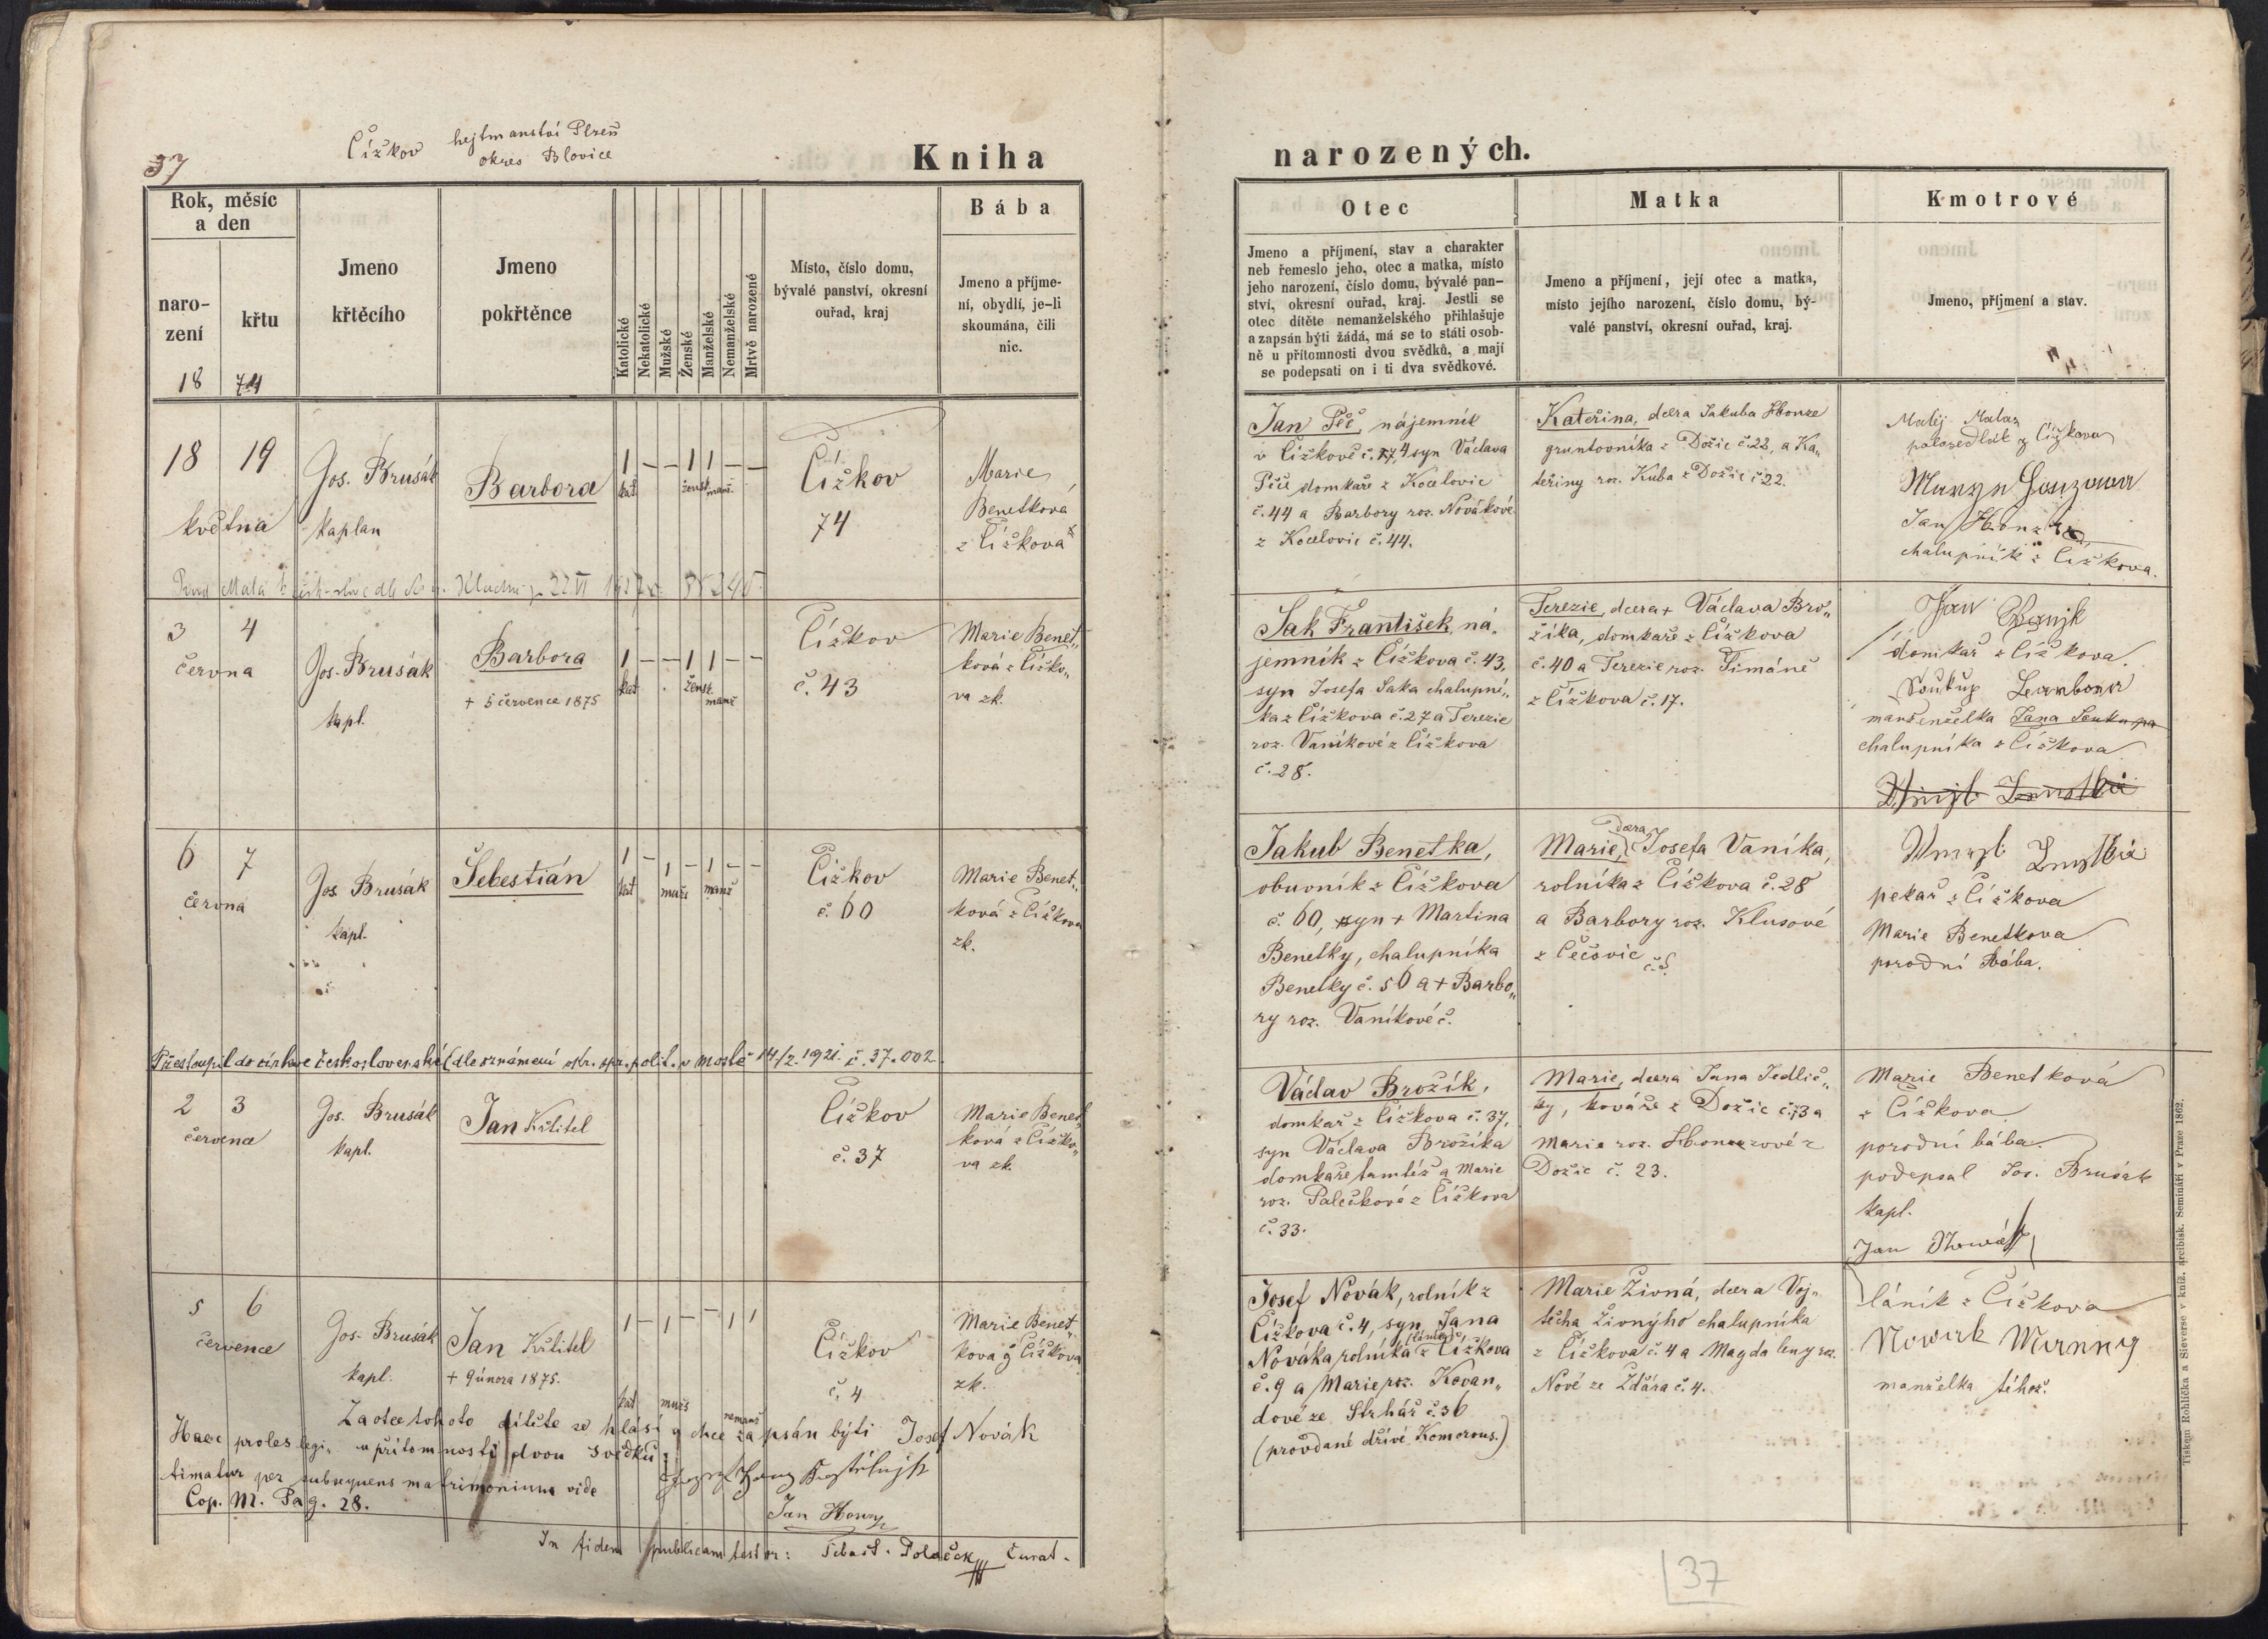 37
Čížkov hejtmanství Plzeň
okres Blovice
Kniha
narozených.
Rok, měsíc
a den
naro-
zení
křtu
18 74
Jmeno
křtěcího
Jmeno
pokřtěnce
Katolické
Nekatolické
Mužské
Ženské
Manželské
Nemanželské
Mrtvě narozené
Místo, číslo domu,
bývalé panství, okresní
ouřad, kraj
Bába
Jmeno a příjme-
ní, obydlí, je-li
skoumána, čili
nic.
Otec
Jmeno a příjmení, stav a charakter
neb řemeslo jeho, otec a matka, místo
jeho narození, číslo domu, bývalé pan-
ství, okresní ouřad, kraj. Jestli se
otec dítěte nemanželského přihlašuje
a zapsán býti žádá, má se to státi osob-
ně u přítomnosti dvou svědků, a mají
se podepsati on i ti dva svědkové.
Matka
Jmeno a příjmení, její otec a matka,
místo jejího narození, číslo domu, bý-
valé panství, okresní ouřad, kraj.
Kmotrové
Jmeno, příjmení a stav.
18 19
května
Jos. Brusák
kaplan
Barbora
1 — — 1 1 — —
kat žensk manž.
Čížkov
74
Marie
Benetková
z Čížkova
Jan Peč, nájemník
v Čížkově č. 74, syn Václava
Peče domkaře z Kocelovic
č. 44 a Barbory roz. Novákové
z Kocelovic č. 44.
Kateřina, dcera Jakuba Honze
gruntovníka z Dožic č. 22, a Ka„
teřiny roz. Kuba z Dožic č 22.
Matěj
polosedlák z Čížkova
Jan Honz
chalupník z Čížkova.
3 4
června
Jos. Brusák
kapl.
Barbora
+ 5 července 1875
1 — — 1 1 — —
kat žensk manž
Čížkov
č. 43
Marie Benet„
ková z Čížko„
va zk.
Sak František, ná„
jemník z Čížkova č. 43,
syn Josefa Saka chalupní„
ka z Čížkova č. 27 a Terezie
roz. Vaníkové z Čížkova
č. 28.
Terezie, dcera + Václava Bro„
žíka, domkaře z Čížkova
č. 40 a Terezie roz. Šimáně
z Čížkova č. 17.
Jan
domkař z Čížkova.
Soukup Barbora
manženželka Jana Soukupa
chalupníka z Čížkova
6 7
června
Jos. Brusák
kapl.
Šebestián
1 — 1 — 1 — —
kat mužs manž
Čížkov
č. 60
Marie Benet„
ková z Čížkova
zk.
Jakub Benetka,
obuvník z Čížkova
č. 60, syn + Martina
Benetky, chalupníka
Benetky č. 50 a + Barbo„
ry roz. Vaníkové č.
dcera
Marie, Josefa Vaníka,
rolníka z Čížkova č. 28
a Barbory roz. Klusové
z Čečovic
pekař z Čížkova
Marie Benetkova
porodní Bába.
Přestoupil do církve československé (dle oznámení okr. spr. polit. v Mostě 14/2. 1921. č. 37.002.
2 3
července
Jos. Brusák
kapl.
Jan Křtitel
Čížkov
č. 37
Marie Benet„
ková z Čížko„
va zk.
Václav Brožík,
domkař z Čížkova č. 37,
syn Václava Brožíka
domkaře tamtéž a Marie
roz. Palečkové z Čížkova
č. 33.
Marie, dcera Jana Jedlič„
ky, kováře z Dožic č. 73 a
Marie roz. Honzové z
Dožic č. 23.
Marie Benetková
z Čížkova
porodní bába.
podepsal Jos. Brusák
kapl.
Jan Nowák
5 6
července
Jos. Brusák
kapl.
Jan Křtitel
+ 9 února 1875.
1 — 1 — — 1 1
kat mužs nemanž
Čížkov
č. 4
Marie Benet„
kova z Čížkova
zk.
Josef Novák, rolník z
Čížkova č. 4, syn Jana
Nováka rolníka (láník) z Čížkova
č. 9 a Marie roz. Kovan„
dové ze Strhář č. 36
(provdané dříve Komorous.)
Marie Živná, dcera Voj„
těcha Živnýho chalupníka
z Čížkova č. 4 a Magdaleny roz.
Nové ze Žďára č. 4.
láník z Čížkova
Nowak
manželka téhož.
Za otce tohoto dítěte se hlásí a chce zapsán býti Josef Novák
u přítomnosti dvou svědků:
Haec proles legi„
timatur per subsequens matrimonium vide
Cop. M. Pag. 28.
Jan Honz
In fidem publicam testor: Šebast. Polaček Curat.
37
Tiskem Rohlíčka a Sieverse v kníž. arcibisk. Semináři v Praze 1862.